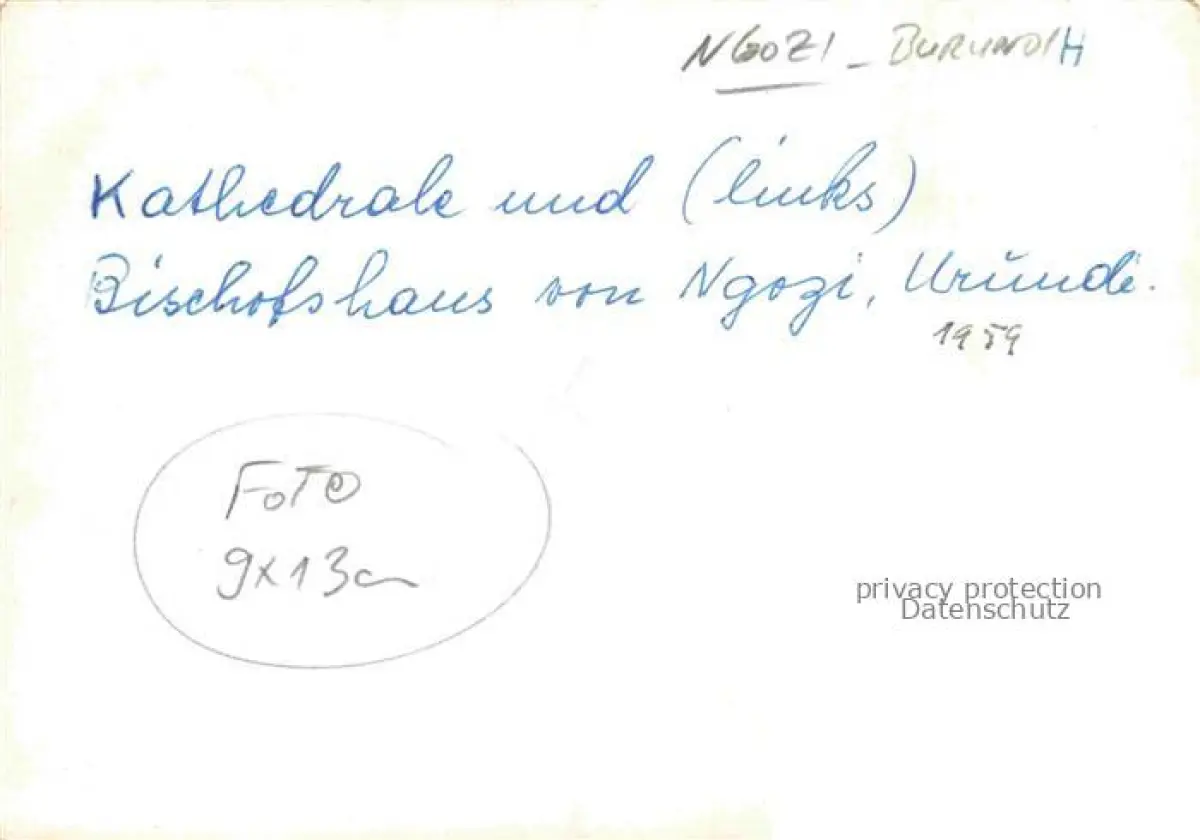 NGOZI - BURUNDI H
Kathedrale und (links)
Bischofshaus von Ngozi, Urundi.
1959
FOTO
9x13cm
privacy protection
Datenschutz